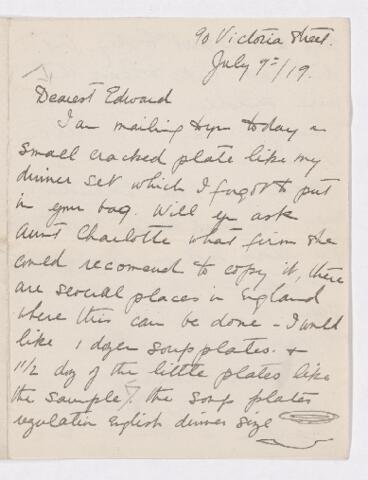 90 Victoria Street.
July 9th/19.
Dearest Edward
I am mailing to you today a
small cracked plate like my
dinner set which I forgot to put
in your bag. Will you ask
Aunt Charlotte what firm she
could recomend to copy it, there
are several places in England
where this can be done - I would
like 1 dozen soup plates &
1 1/2 doz of the little plates like
the sample. the soup plates
regulation English dinner size